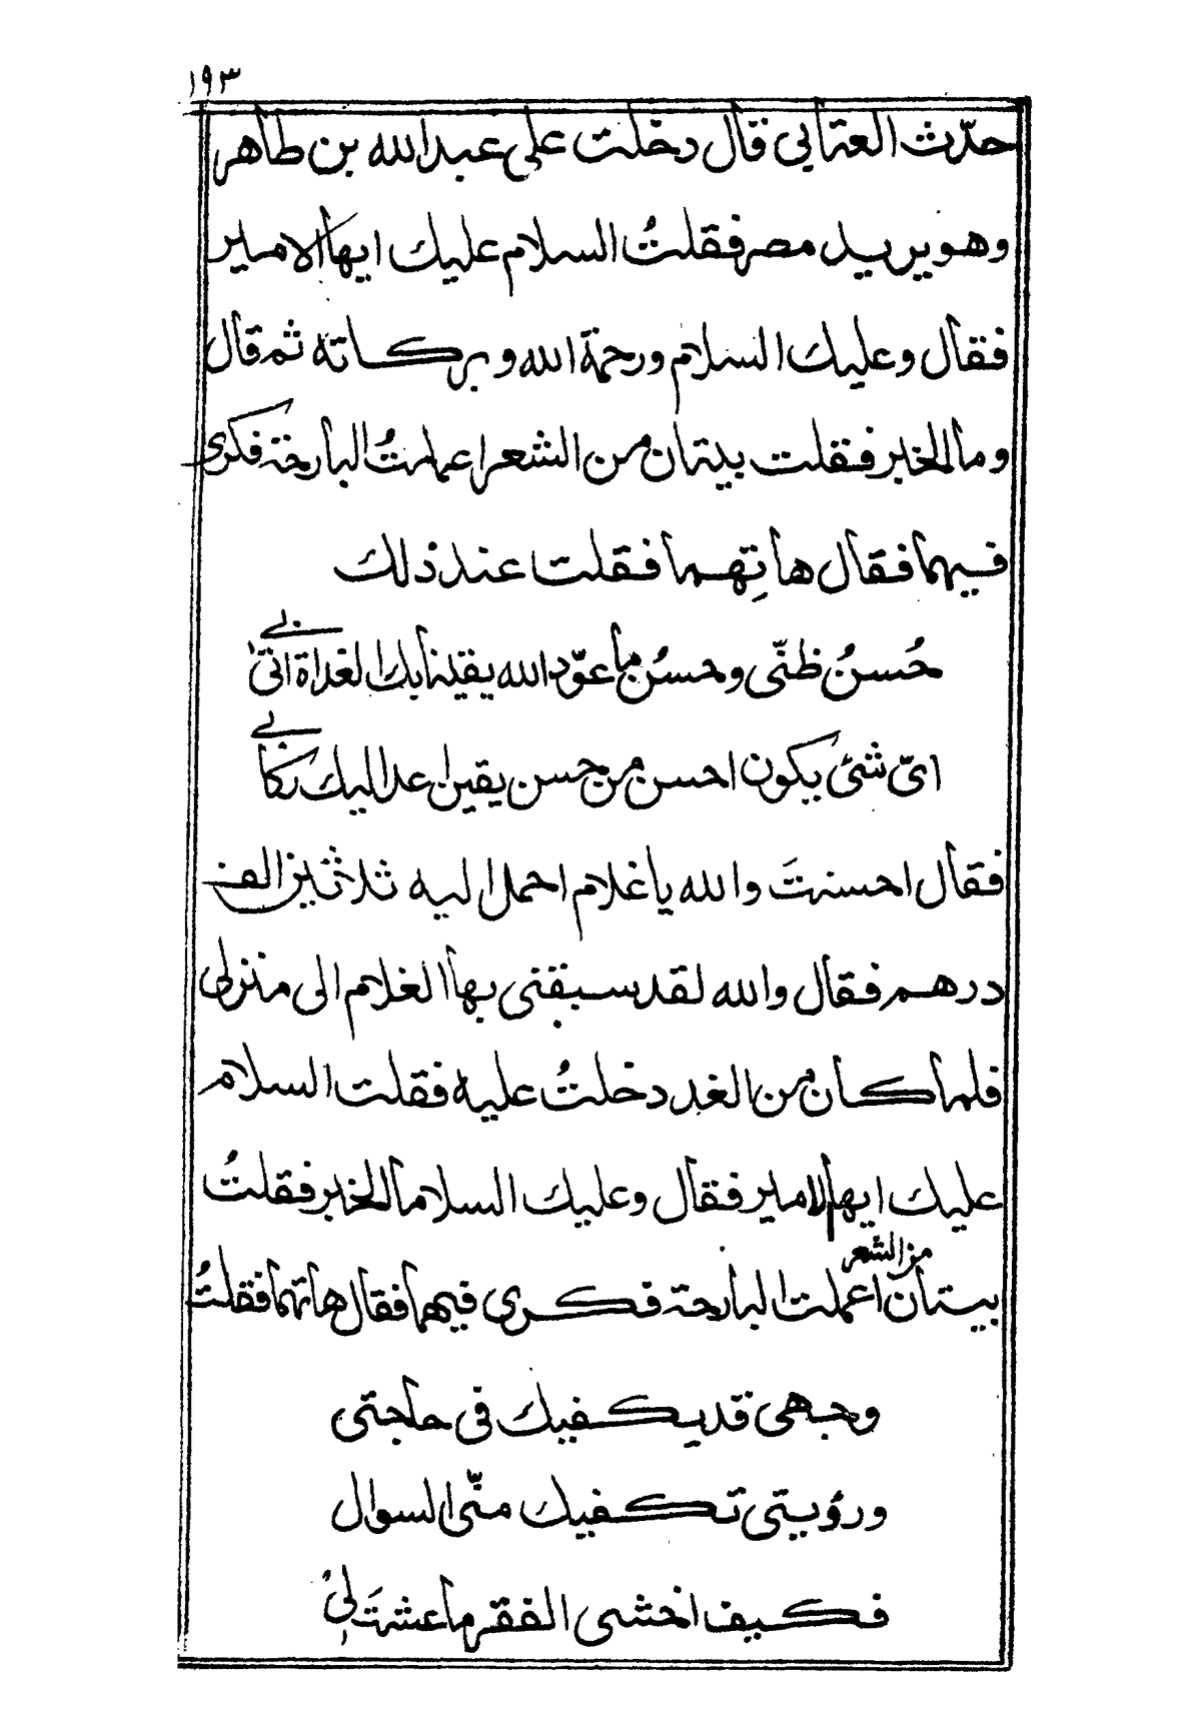 ١٩٣
حدّث العتابي قال دخلت على عبدالله بن طاهر
وهو يريد مصر فقلتُ السلام عليك ايها الامير
فقال وعليك السلام ورحمة الله وبركاته ثم قال
وما الخبر فقلت بيتان من الشعر اعملتُ البارحة فكرى
فيهما فقال هاتِهما فقلت عند ذلك
حُسنُ ظنّى وحسنُ ما عوّد الله يقينا بك الغداة اتى بي
اىّ شئ يكون احسن من حسن يقين اعدا اليك ركابي
فقال احسنتَ والله يا غلام احمل اليه ثلاثين الف
درهم فقال والله لقد سبقنى بها الغلام الى منزلى
فلما كان من الغد دخلتُ عليه فقلت السلام
عليك ايها الامير فقال وعليك السلام ما الخبر فقلتُ
من الشعر
بيتان اعملت البارحة فكرى فيهما فقال هاتهما فقلتُ
وجهى قد يكفيك في حاجتى
ورؤيتى تكفيك منّى السوال
فكيف اخشى الفقر ما عشتَ لى